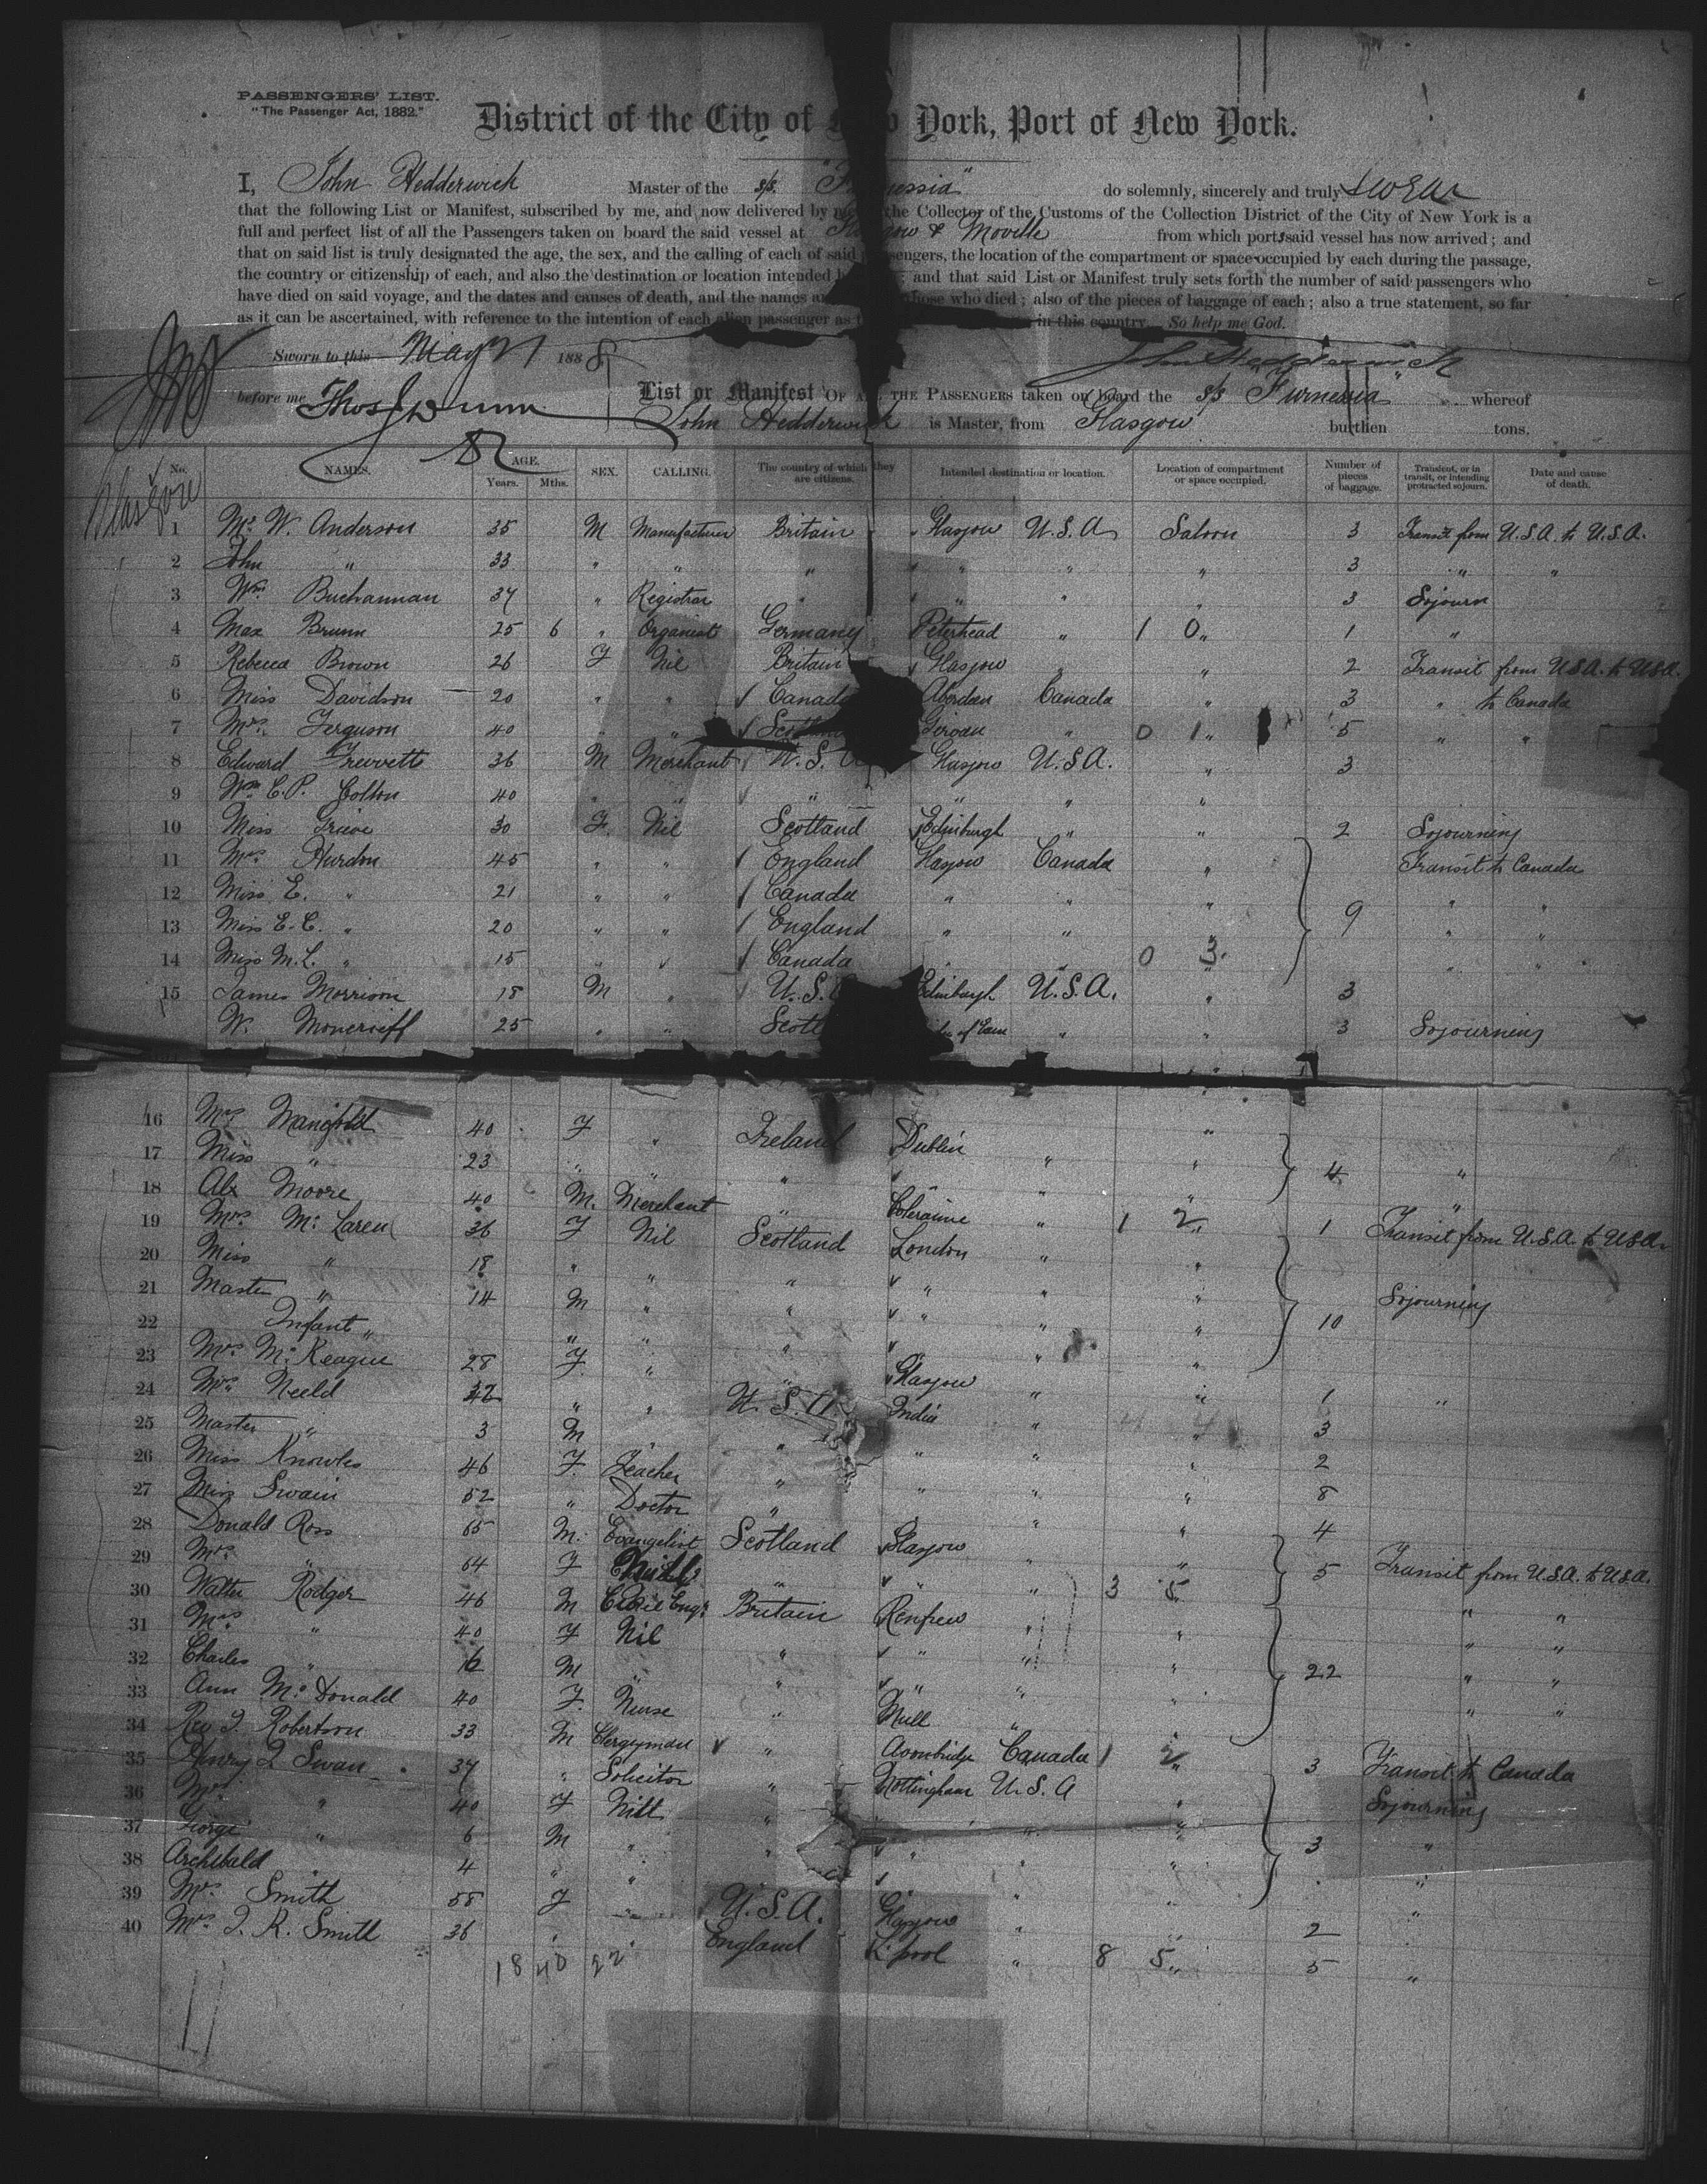 PASSENGERS' LIST.
"The Passenger Act, 1882."
District of the City of New York, Port of New York.
I, John Hedderwick Master of the s/s. "Furnessia" do solemnly, sincerely and truly swear
that the following List or Manifest, subscribed by me, and now delivered by me the Collector of the Customs of the Collection District of the City of New York is a
full and perfect list of all the Passengers taken on board the said vessel at Glasgow & Moville from which ports said vessel has now arrived; and
that on said list is truly designated the age, the sex, and the calling of each of said passengers, the location of the compartment or space occupied by each during the passage,
the country or citizenship of each, and also the destination or location intended and that said List or Manifest truly sets forth the number of said passengers who
have died on said voyage, and the dates and causes of death, and the names those who died; also of the pieces of baggage of each; also a true statement, so far
as it can be ascertained, with reference to the intention of each alien passenger as in this country. So help me God.
Sworn to this May 21 1888 John Hedderwick
before me Thos J Dunn List or Manifest OF ALL THE PASSENGERS taken on board the s/s Furnessia whereof
John Hedderwick is Master, from Glasgow burthen tons.
Glasgow
No. NAMES. AGE. Years. Mths. SEX. CALLING. The country of which they are citizens. Intended destination or location. Location of compartment or space occupied. Number of pieces of baggage. Transient, or in transit, or intending protracted sojourn. Date and cause of death.
1 Mr W. Anderson 35 M Manufacturer Britain Glasgow U.S.A Saloon 3 Transit from U.S.A. to U.S.A.
2 John " 33 " " " " " " 3 " "
3 Wm Buchannan 37 " Registrar " " " " 3 Sojourn
4 Max Brunn 25 6 " Organist Germany Peterhead " 1 0 " 1 "
5 Rebecca Brown 26 F Nil Britain Glasgow " " 2 Transit from U.S.A. to U.S.A.
6 Miss Davidson 20 " " Canada Aberdeen Canada " 3 " to Canada
7 Mrs. Ferguson 40 " " Scotland Girvan " 0 1 " 5 " "
8 Edward Trevvett 36 M Merchant U.S.A Glasgow U.S.A. " 3
9 Wm C.P. Colton 40 " " " " " "
10 Miss Grieve 30 F. Nil Scotland Edinburgh " " 2 Sojourning
11 Mrs. Hurdon 45 " " England Glasgow Canada " Transit to Canada
12 Miss E. " 21 " " Canada " " " 9 " "
13 Miss E.C. " 20 " " England " " " " "
14 Miss M.L. " 15 " " Canada " " 0 3. " " "
15 James Morrison 18 M " U.S. Edinburgh U.S.A. " 3
W. Moncrieff 25 " " Scotl of Earn " " 3 Sojourning
16 Mrs Manifold 40 F " Ireland Dublin " "
17 Miss " 23 " " " " " " 4 "
18 Alx Moore 40 M. Merchant " Coleraine " 1 2. 1 "
19 Mrs. McLaren 36 F Nil Scotland London " " Transit from U.S.A. to U.S.A.
20 Miss " 18 " " " " " "
21 Master " 14 M " " " " " 10 Sojourning
22 Infant " " " " " " "
23 Mrs. McKeague 28 F. " " Glasgow " " 1 "
24 Mrs. Neeld 42 " " U.S.A India " 4 4 3
25 Master " 3 M " " " " " 2
26 Miss Knowles 46 F. Teacher " " " " 8
27 Miss Swain 52 " Doctor " " " " 4
28 Donald Ross 65 M. Evangelist Scotland Glasgow " " 5 Transit from U.S.A. to U.S.A.
29 Mrs. " 64 F " " " 3 5 " "
30 Walter Rodger 46 M Civil Engr Britain Renfrew " " " "
31 Mrs " 40 F Nil " " " " 22 " "
32 Charles " M " " " " " " "
33 Ann McDonald 40 F. Nurse " Mull " "
34 Rev J. Robertson 33 M Clergyman " Avonbridge Canada 1 2 3 Transit to Canada
35 Henry J Swan 37 " Solicitor " Nottingham U.S.A " Sojourning
36 Mrs " 40 F Nill " " " " 3 "
37 George " 6 M " " " " " "
38 Archibald " 4 " " " " " " "
39 Mrs. Smith 58 F " U.S.A. Glasgow " " 2
40 Mrs. J. R. Smith 36 " " England L'pool " 8 5 " 5 "
18 40 22